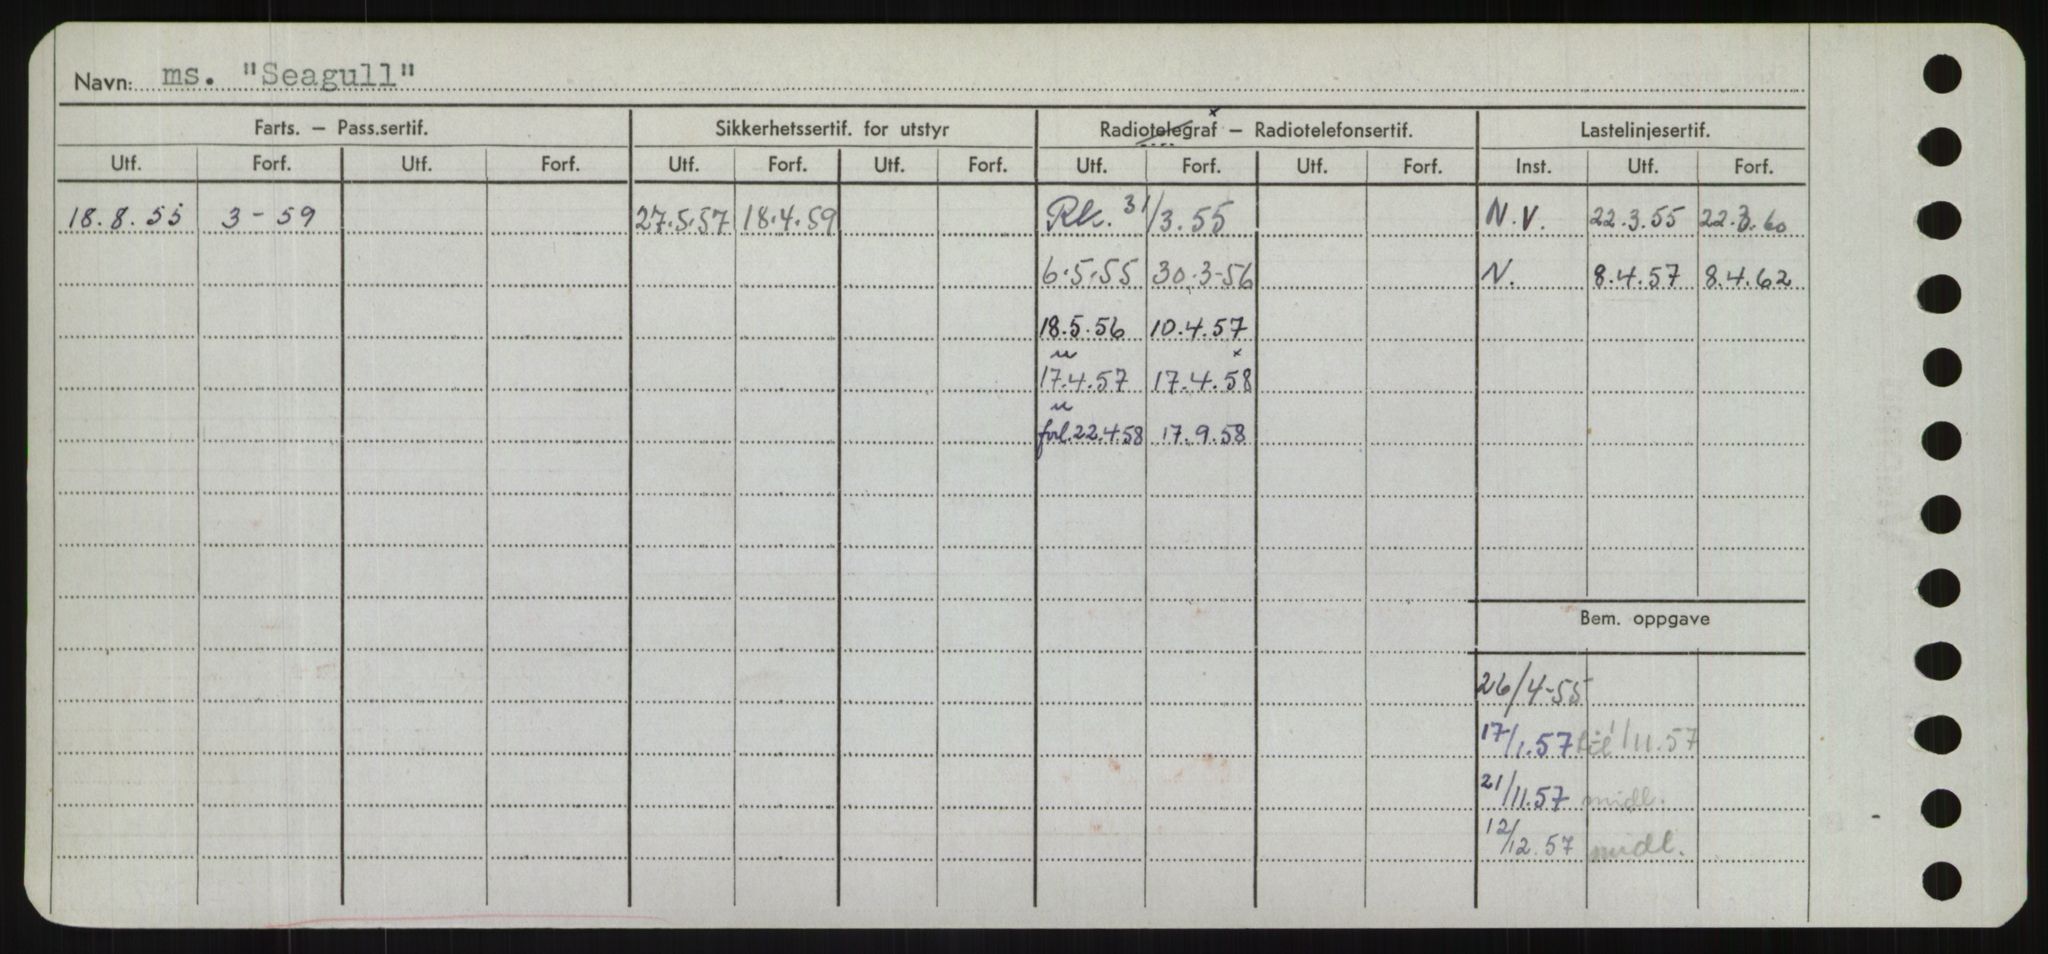 Navn: ms. "Seagull"
Farts. – Pass.sertif. Sikkerhetssertif. for utstyr Radiotelegraf – Radiotelefonsertif. Lastelinjesertif.
Utf. Forf. Utf. Forf. Utf. Forf. Utf. Forf. Utf. Forf. Utf. Forf. Inst. Utf. Forf.
18.8.55 3-59 27.5.57 18.4.59 Rk. 31/3.55 N.V. 22.3.55 22.3.60
6.5.55 30.3-56 N. 8.4.57 8.4.62
18.5.56 10.4.57
17.4.57 17.4.58
forl. 22.4.58 17.9.58
Bem. oppgave
26/4-55
17/1.57 til 1/11.57
21/11.57 midl.
12/12.57 midl.